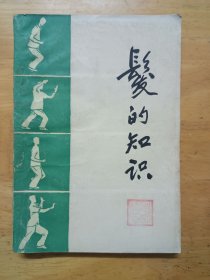 髮的知识